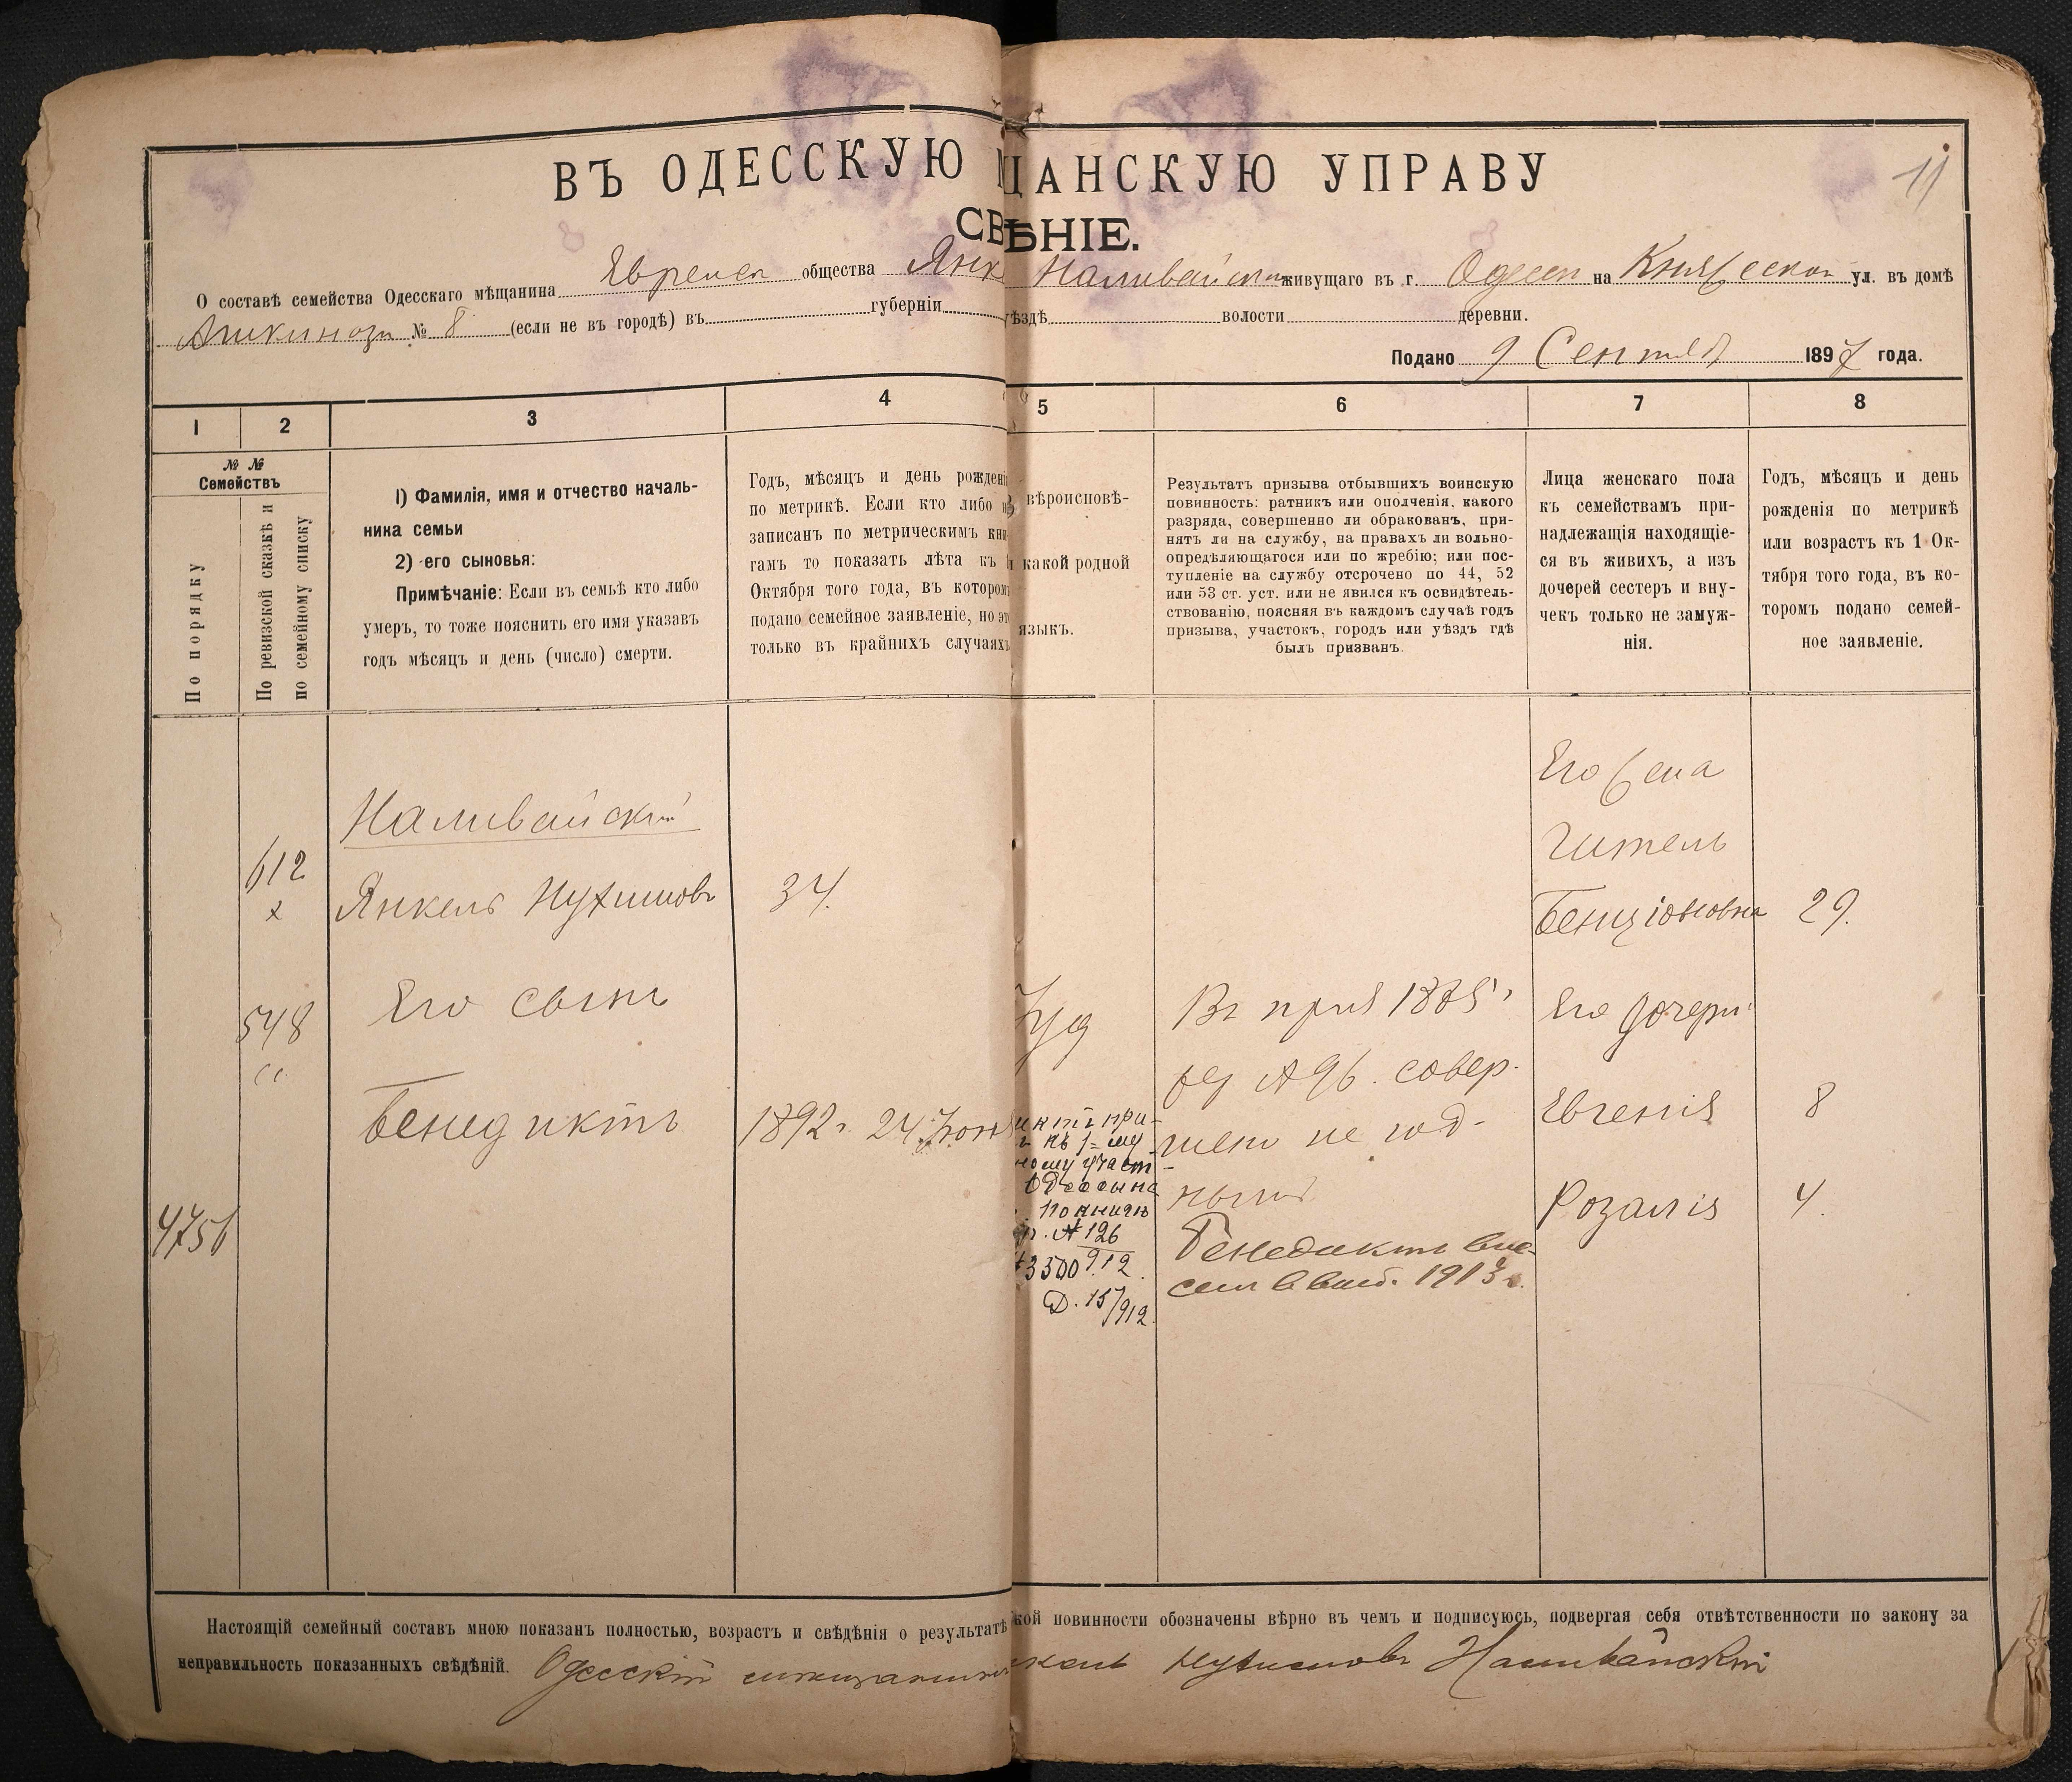 11
ВЪ ОДЕССКУЮ ЩАНСКУЮ УПРАВУ
СВѢНІЕ.
О составѣ семейства Одесскаго мѣщанина Евреиск общества Янк Наливайскаго живущаго въ г. Одессе на Княжеской ул. въ домѣ
№ 8 (если не въ городѣ) въ губерніи уѣздѣ волости деревни.
Подано 9 Сентяб 1897 года.
1 2 3 4 5 6 7 8
№ №
Семействъ
По порядку
По ревизской сказкѣ и
по семейному списку
1) Фамилія, имя и отчество началь-
ника семьи
2) его сыновья:
Примѣчаніе: Если въ семьѣ кто либо
умеръ, то тоже пояснить его имя указавъ
годъ мѣсяцъ и день (число) смерти.
Годъ, мѣсяцъ и день рождені
по метрикѣ. Если кто либо н
записанъ по метрическимъ кни
гамъ то показать лѣта къ
Октября того года, въ котором
подано семейное заявленіе, но эт
только въ крайнихъ случаяхъ
вѣроисповѣ-
какой родной
языкъ.
Результатъ призыва отбывшихъ воинскую
повинность: ратникъ или ополченія, какого
разряда, совершенно ли обракованъ, при-
нятъ ли на службу, на правахъ ли вольно-
опредѣляющагося или по жребію; или пос-
тупленіе на службу отсрочено по 44, 52
или 53 ст. уст. или не явился къ освидѣтель-
ствованію, поясняя въ каждомъ случаѣ годъ
призыва, участокъ, городъ или уѣздъ гдѣ
былъ призванъ.
Лица женскаго пола
къ семействамъ при-
надлежащія находящіе-
ся въ живихъ, а изъ
дочерей сестеръ и вну-
чекъ только не замуж-
нія.
Годъ, мѣсяцъ и день
рожденія по метрикѣ
или возрастъ къ 1 Ок-
тября того года, въ ко-
торомъ подано семей-
ное заявленіе.
612
548
4756
Наливайскій
Янкель Нухимовъ 34.
Его сынъ
Бенедиктъ 1892г. 24 Іюн
Іуд
иктъ при-
къ 1-му
ному участ-
Одессы на
По книгѣ
№ 126
3500 912.
Д. 15/912.
Въ приз 1885г
№ 96. совер-
шено не год-
ным
Бенедиктъ вне-
сен в 1913 г.
Его жена
Гитель
Бенціоновна 29.
Его дочери
Евгенія 8
Розалія 4.
Настоящій семейный составъ мною показанъ полностью, возрастъ и свѣдѣнія о результатѣ кой повинности обозначены вѣрно въ чемъ и подписуюсь, подвергая себя отвѣтственности по закону за
неправильность показанныхъ свѣдѣній. Одесскій мещанин кель Нухимовъ Наливайскій